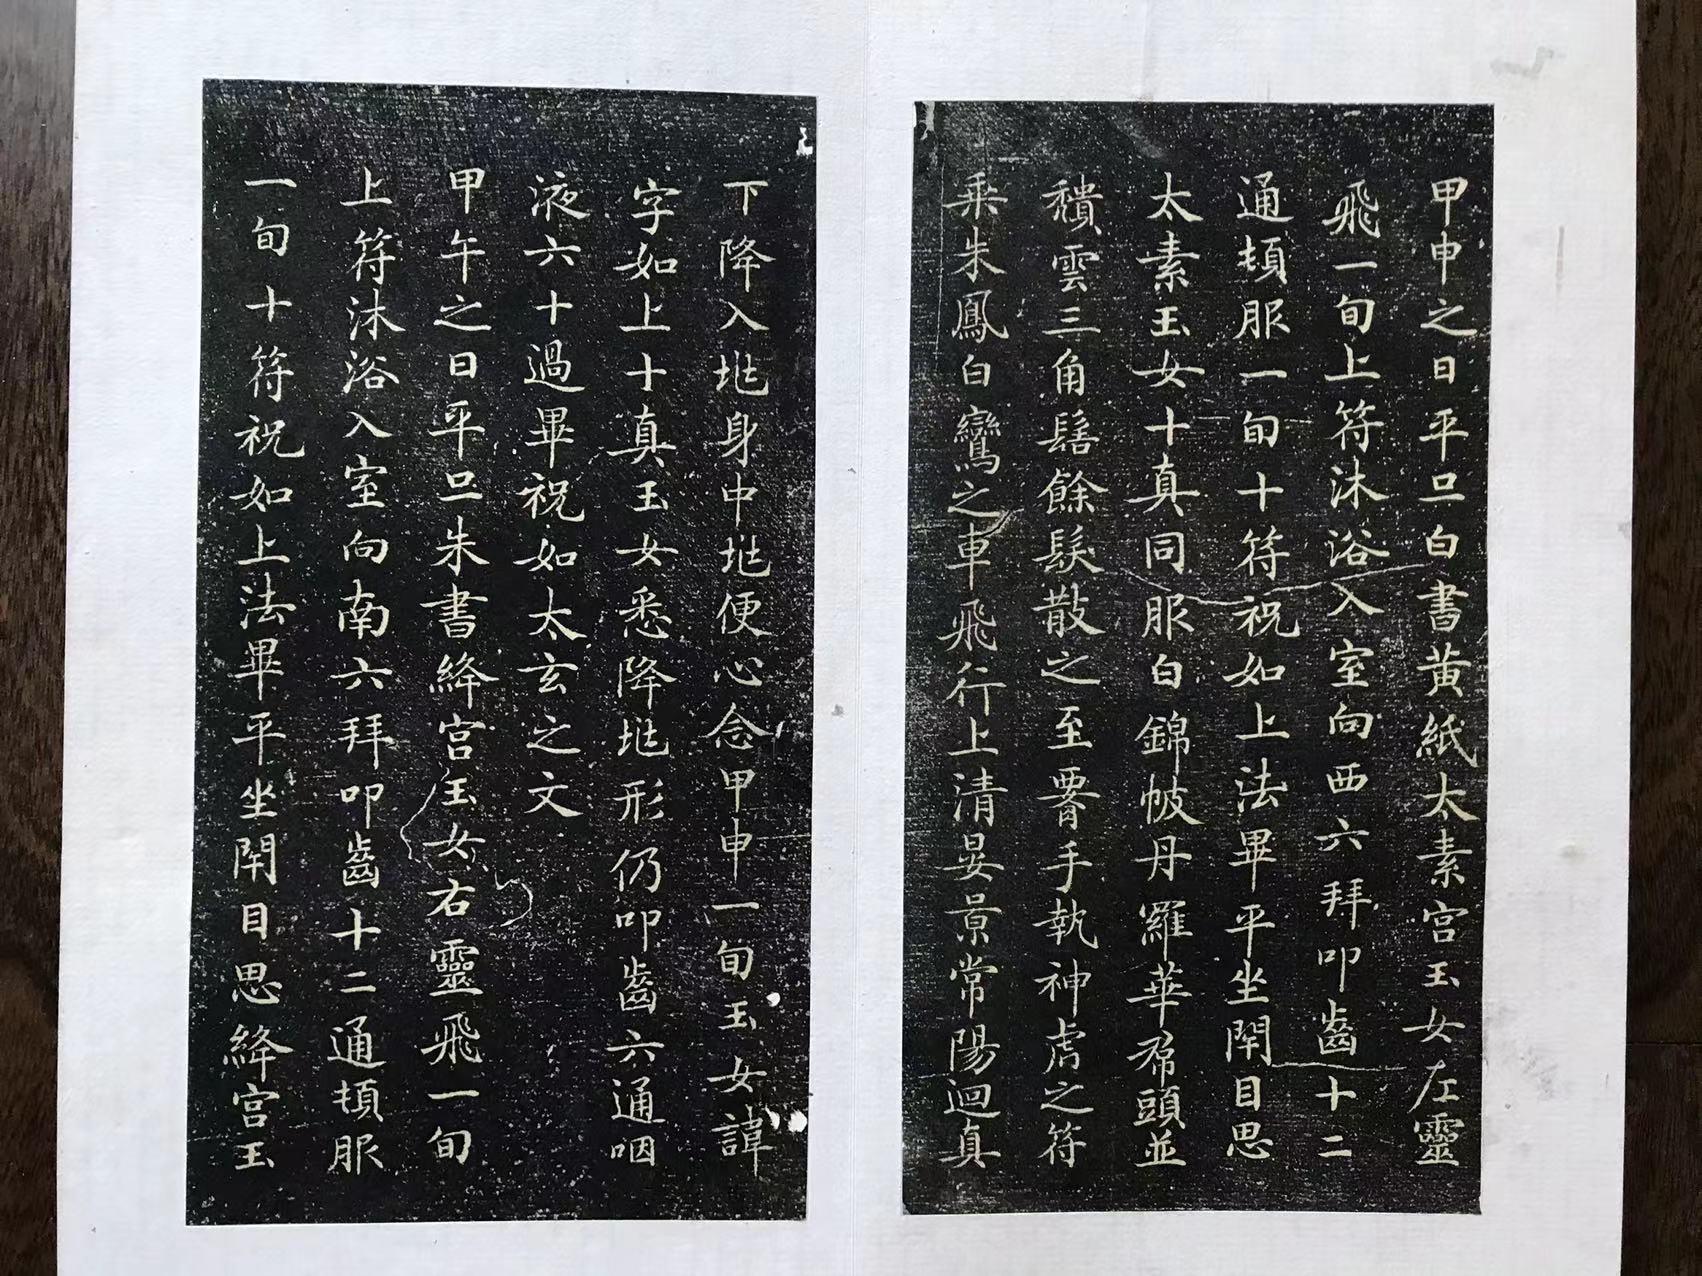 甲申之日平旦白書黃紙太素宮玉女左靈
飛一旬上符沐浴入室向西六拜叩齒十二
通頓服一旬十符祝如上法畢平坐閇目思
太素玉女十真同服白錦帔丹羅華帬頭並
穨雲三角髻餘髮散之至署手執神虎之符
乘朱鳳白鸞之車飛行上清晏景常陽迴真
下降入坐身中坐便心念甲申一旬玉女諱
字如上十真玉女悉降坐形仍叩齒六通咽
液六十過畢祝如太玄之文
甲午之日平旦朱書絳宮玉女右靈飛一旬
上符沐浴入室向南六拜叩齒十二通頓服
一旬十符祝如上法畢平坐閇目思絳宮玉